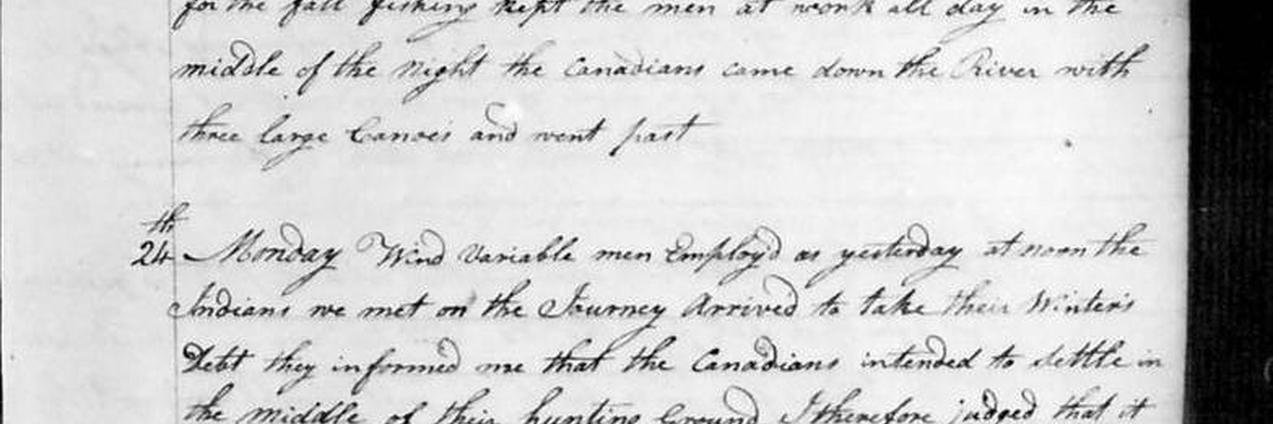 for the fall fishing kept the men at work all day in the
middle of the Night the Canadians came down the River with
three large Canoes and went past
th
24 Monday Wind Variable men Employ'd as yesterday at noon the
Indians we met on the Journey Arrived to take their Winters
Debt they informed me that the Canadians intended to Settle in
the middle of their hunting Ground I therefore judged that it